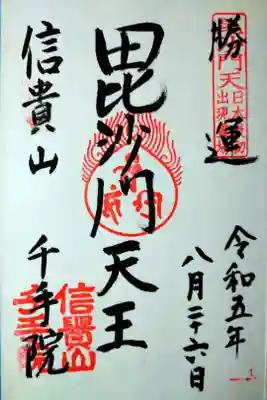 勝運
令和五年
八月二十六日
毘沙門天王
信貴山
千手院
信貴山